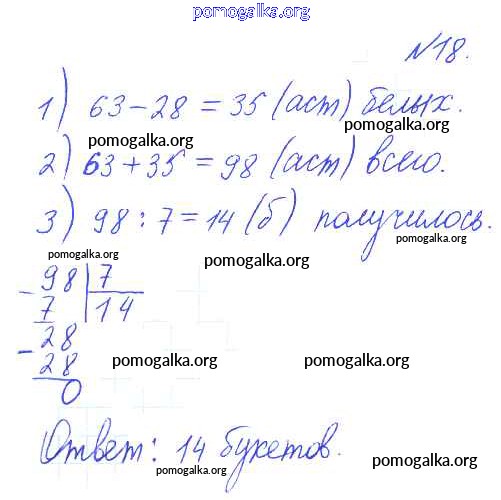 pomogalka.org
№18.
1) 63-28 = 35 (аст) белых.
pomogalka.org pomogalka.org
2) 63+35 = 98 (аст) всего.
3) 98:7=14 (б) получилось.
pomogalka.org pomogalka.org pomogalka.org
- 98 | 7
7 | 14
- 28
28
pomogalka.org pomogalka.org
0
Ответ: 14 букетов.
pomogalka.org pomogalka.org